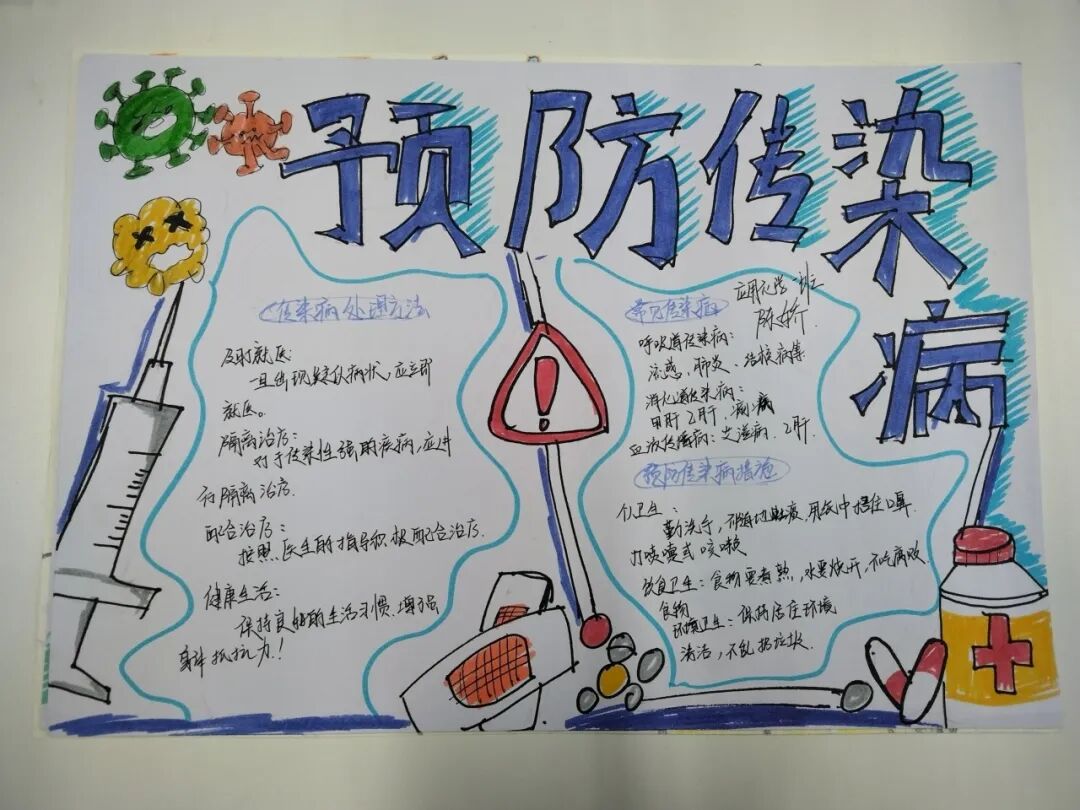 预防传染
病
传染病处理方法
及时就医:
一旦出现疑似病状,应立即
就医。
隔离治疗:
对于传染性强的疾病,应进
行隔离治疗.
配合治疗:
按照医生的指导积极配合治疗.
健康生活:
保持良好的生活习惯,增强
身体抵抗力!
应用化学一班
陈娇.
常见传染病
呼吸道传染病:
流感,肺炎、结核病等
消化道传染病:
甲肝
乙肝.
血液传播病:艾滋病.乙肝.
预防传染病措施
个卫生:
勤洗手,不随地吐痰,用纸巾捂住口鼻.
打喷嚏或咳嗽
饮食卫生:食物要煮熟,水要烧开,不吃腐败
食物
环境卫生:保持居住环境
清洁,不乱扔垃圾.